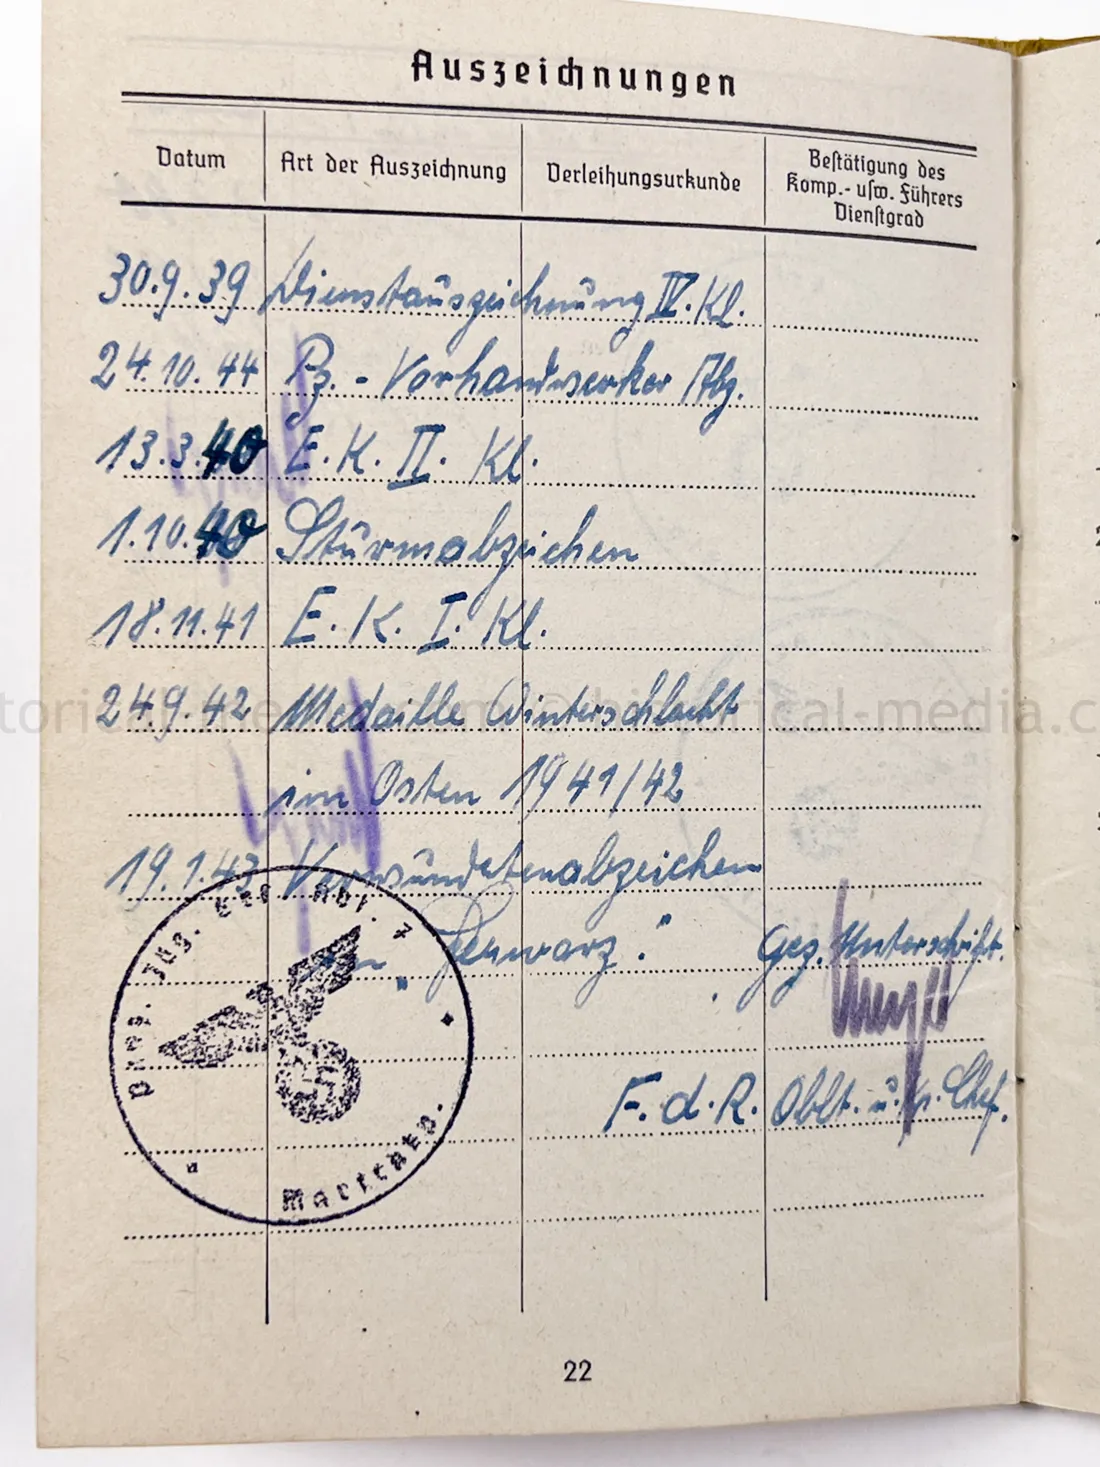 Auszeichnungen
Datum Art der Auszeichnung Verleihungsurkunde Bestätigung des Komp.- usw. Führers Dienstgrad
30.9.39 Dienstauszeichnung IV. Kl.
24.10.44 Pz. - Vorhandwerker Abz.
13.3.40 E. K. II. Kl.
1.10.40 Sturmabzeichen
18.11.41 E. K. I. Kl.
24.9.42 Medaille Winterschlacht
im Osten 1941/42
19.1.43 Verwundetenabzeichen
in „Schwarz." Gez. Unterschrift.
F. d. R. Oblt. u. Kp. Chef.
22